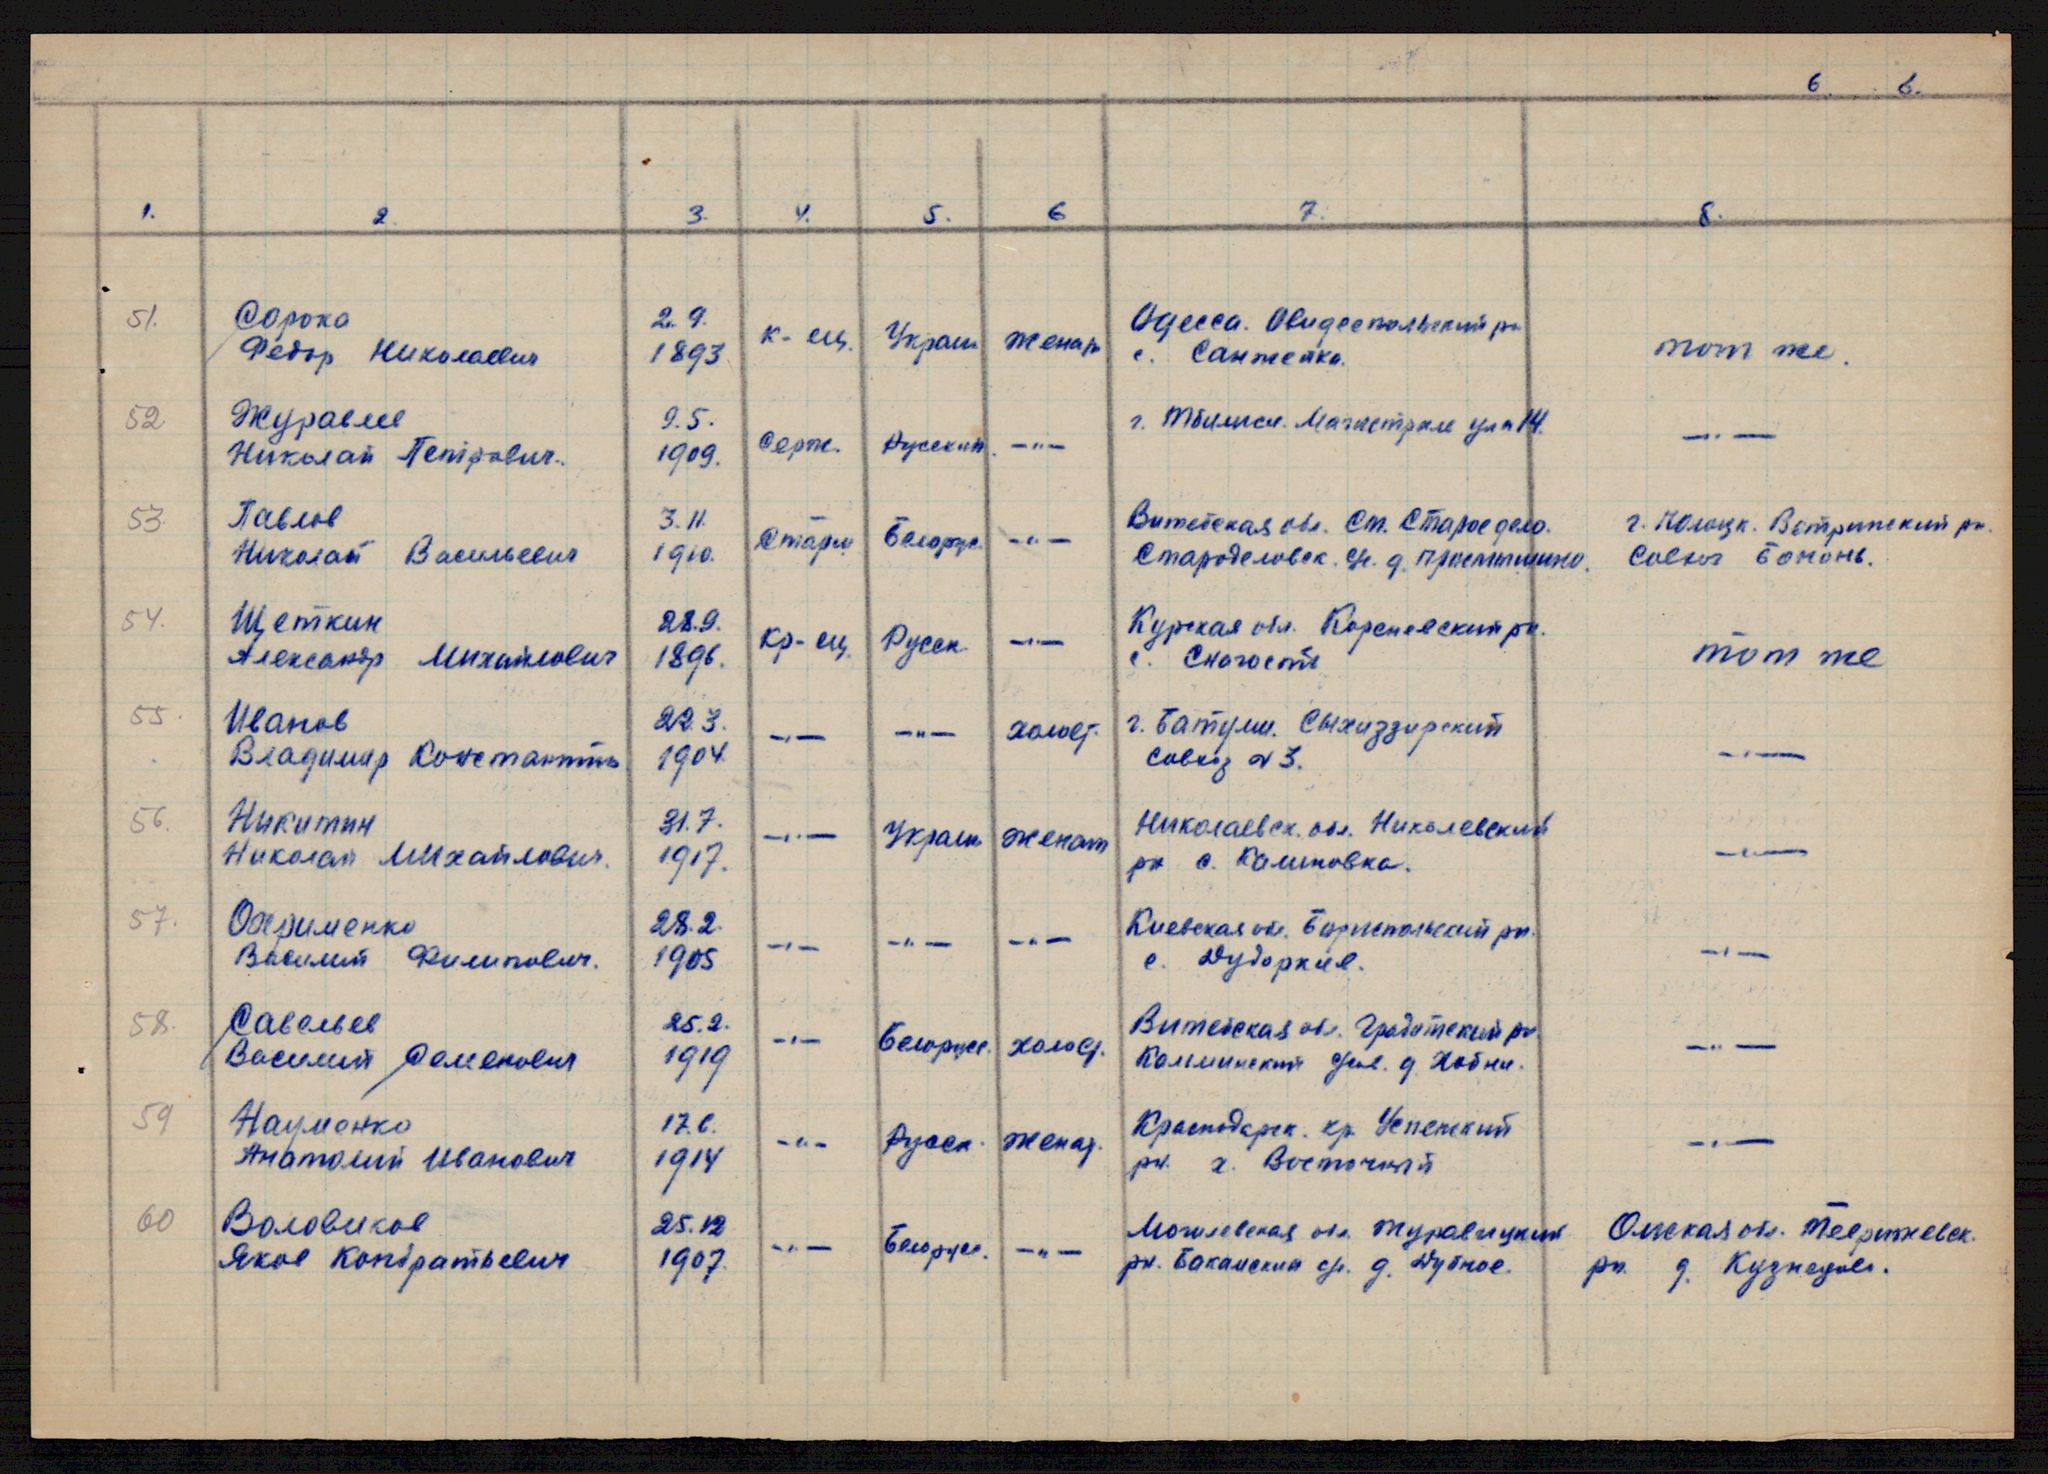 6. 6.
1. 2. 3. 4. 5. 6 7. 8.
51. Сорока 2. 9. к-ец. Украин. женат Одесса. Овидеопольский рн
Федор Николаевич 1893 с. Санжейка. тот же.
52 Журавлев 9.5. г. Тбилиси. Магистрале ул. 14.
Николай Петрович. 1909. Серж. Русский. —"— —"—
53. Павлов 3.11. Витебская обл. Ст. Староедело. г. Полоцк. Ветринский рн.
Николай Васильевич 1910. Старш Белорус. —"— Староделовск. с/с. д. Совхоз Бононь.
54. Щеткин 28.9. Кр-ец. Русск. —"— Курская обл. Кореневский рн.
Александр Михайлович 1896. с. Снагость тот же
55. Иванов 22.3. —"— —"— холост. г. Батуми. Сыхиздирский
Владимир Константин 1904 совхоз № 3. —"—
56. Никитин 31.7. —"— Украин. женат Николаевск. обл. Николевский
Николай Михайлович. 1917. рн с. Калиновка. —"—
57. Охрименко 28.2. —"— —"— —"— Киевская обл. Бориспольский рн.
Василий Филипович. 1905 с. Дударкив. —"—
58. Савельев 25.2. —"— Белорусс. холост. Витебская обл. Градотский рн.
Василий Семенович 1919 д. Хобни. —"—
59 Науменко 17.6. —"— Русск. женат. Краснодарск. кр. Успенский
Анатолий Иванович 1914 рн. х. Восточный —"—
60 Воловиков 25.12 —"— Белорусс. —"— Могилевская обл. Журавицкий Омская обл. Тевризневск.
Яков Кондратьевич 1907. рн. Бакамский с/с. д. Дубное. рн. д. Кузнецово.